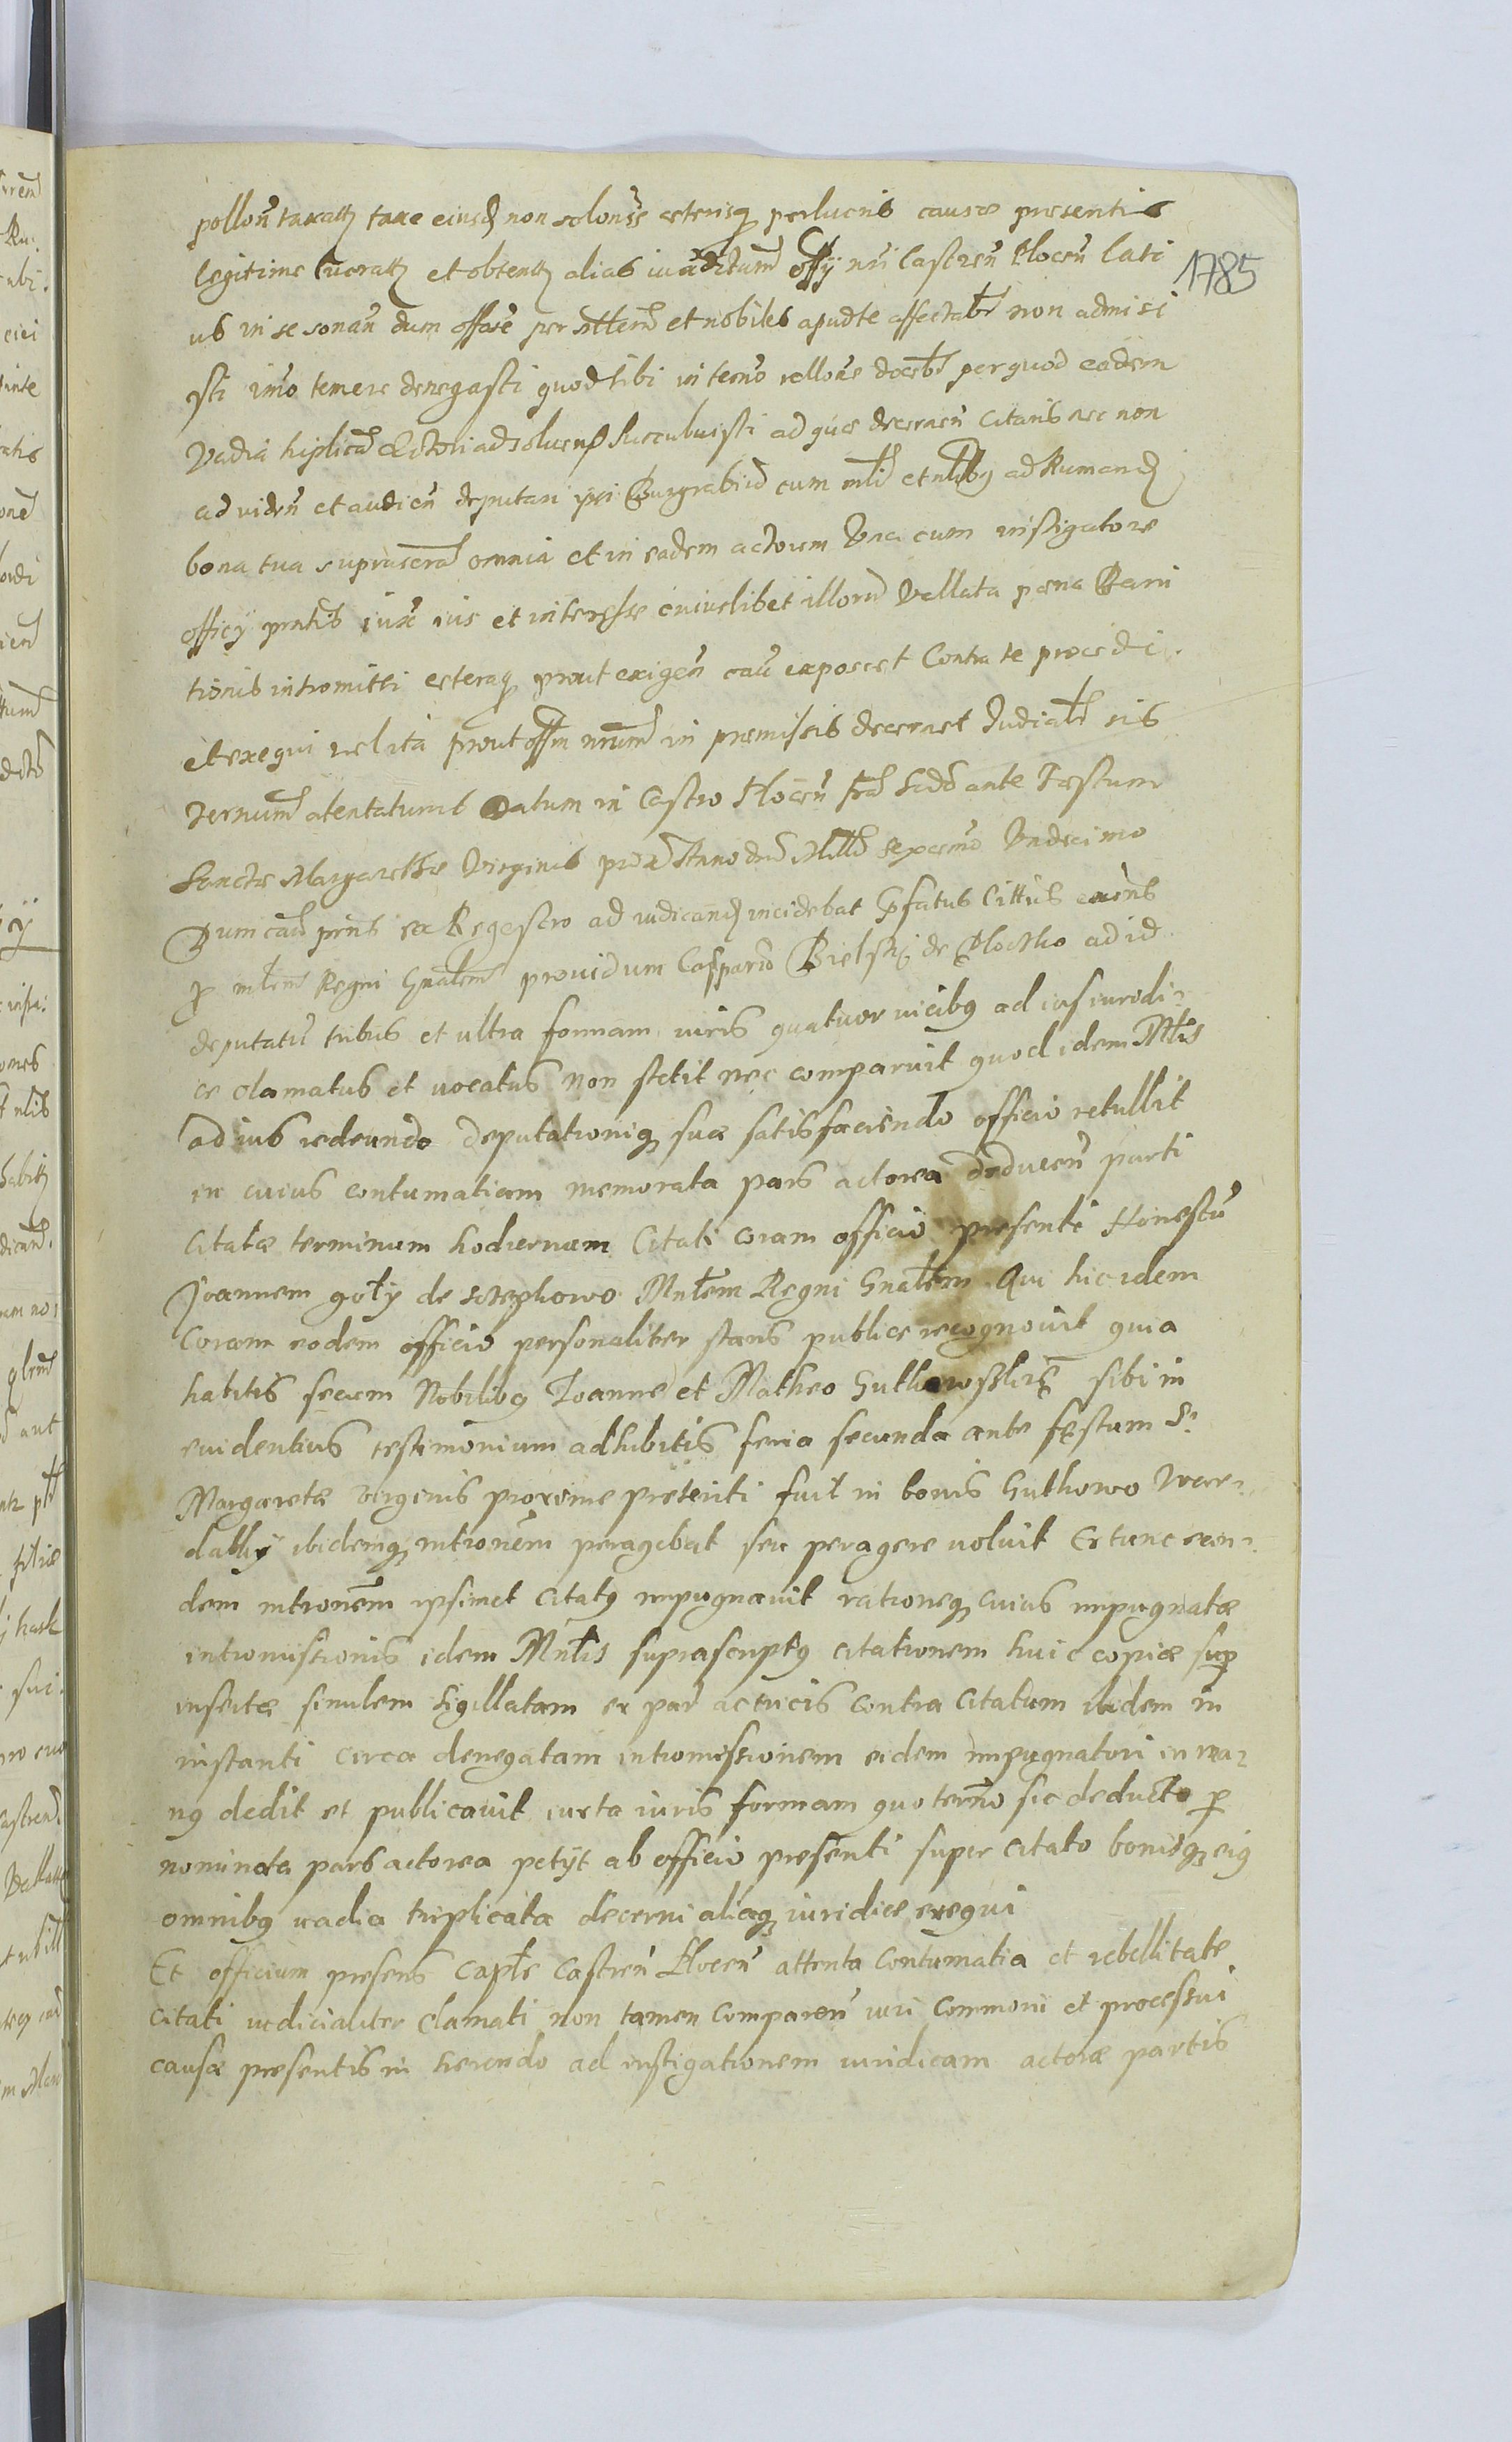 pollon taxatt taxe eiusd non solonis ceterisq perlucris causae presentis
legitime lucratt et obtentt alias iuaditum offy nri Castren Plocen lati
us in se sonan dum offare per mtlem et nobiles apud te affectabr non admisi
sti imo temere denegasti quod tibi in termo rellone docebr per quod eadem
Vadia triplicd Actori ad soluend succubuisti ad quae decernen citaris nec non
ad viden et audien deputari ipsi Burgrabiu cum mli et nlibq ad Rumand
bona tua suprascrao omnia et in eadem actorem Una cum instigatore
officy pntis iuxe ius et interesse cuiuslibet illoru Vallata poena Bani
tionis intromitti ceteraq prout exigen cau exposcet Contra te procedi.
et exequi vel ita prout offm nrum in premissis decernet Iudialr sis
ternum atentaturus Datum in Castro Plocen fra scda ante Festum
Sanctae Margarethae Virginis prox Anno dni Millo sexcenmo Undecimo
Dum cau prnts ex Regestro ad iudicand incidebat Prfatus Cittus exiens
p mlem Regni Gnalem providum Casparu Bielski de Ploczko ad id
deputatu tribus et ultra formam iuris quatuor vicibq ad ius iuredi-
ce clamatus et vocatus non stetit nec comparuit quod idem Mlis
ad ius redeundo deputationiq suae satisfaciendo officio retullit
in cuius contumatiam memorata pars actorea deducen parti
citatae terminum hodiernum Citati coram officio presenti Honestu
Joannem goly de Szczephowo Mnlem Regni Gnalem Qui hic idem
coram eodem officio personaliter stans publice recognovit quia
habitis secum Nobilibq Joanne et Matheo Guthowskis sibi in
euidentius testimonium adhibitis feria secunda ante festum S.
Margaretae virginis proxime preteriti fuit in bonis Guthowo War-
dalky ibidemq intronem peragebat seu peragere voluit Et tunc ean-
dem intronem ipsimet citatq impugnavit rationeq cuius impugnatae
intromissionis idem Mnlis suprascriptq citationem huic copiae sup
insertae similem sigillatam ex par actricis contra citatum ibidem in
instanti circa denegatam intromissionem eidem impugnatori in ma-
nq dedit et publicavit iuxta iuris formam quo termo sic deducto p
nominata pars actorea petyt ab officio presenti super citato bonisq eiq
omnibq vadia triplicata decerni aliaq iuridice exequi
Et officium presens Caple Castren Plocen attenta Contumatia et rebellitate
citati iudicialiter clamati non tamen comparen iuri Communi et processui
causae presentis in herendo ad instigationem iuridicam actorae partis
1785